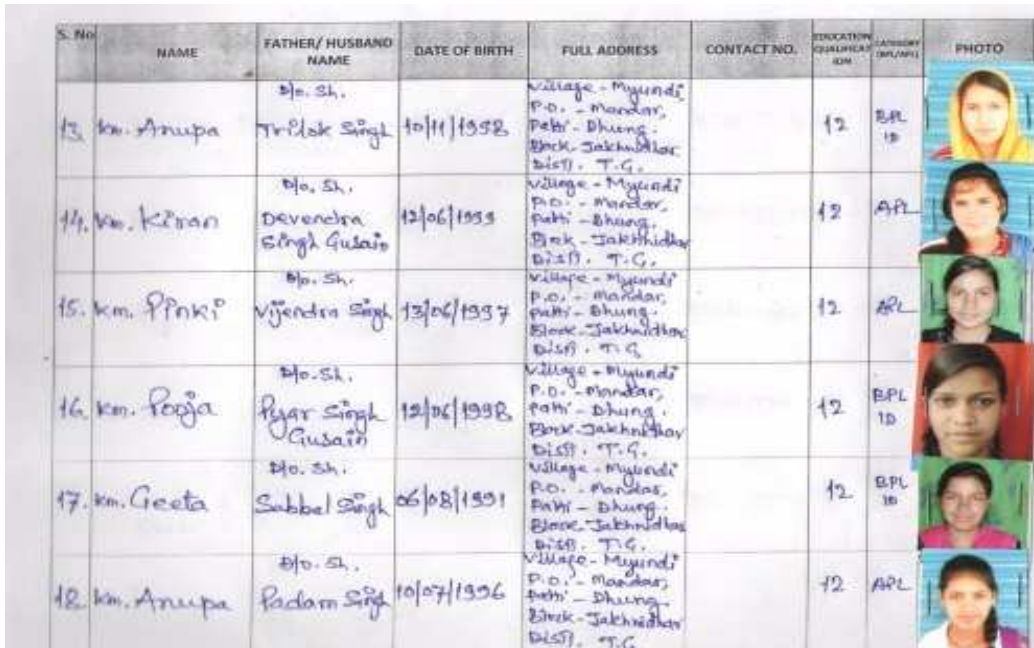 S. No NAME FATHER/ HUSBAND NAME DATE OF BIRTH FULL ADDRESS CONTACT NO. EDUCATION QUALIFICATION CATEGORY (BPL/APL) PHOTO
D/o. Sh.
13. Km. Anupa Trilok Singh 10/11/1998 12 BPL ID
Village - Myundi
P.O. - Mandar,
Patti - Dhung.
Block - Jakhnidhar
Distt. T.G.
D/o. Sh.
14. Km. Kiran Devendra Singh Gusain 12/06/1999 12 APL
Village - Myundi
P.O. - Mandar,
Patti - Dhung.
Block - Jakhnidhar
Distt. T.G.
D/o. Sh.
15. Km. Pinki Vijendra Singh 13/06/1997 12 APL
Village - Myundi
P.O. - Mandar,
Patti - Dhung.
Block - Jakhnidhar
Distt. T.G.
D/o. Sh.
16. Km. Pooja Pyar Singh Gusain 12/06/1998 12 BPL ID
Village - Myundi
P.O. - Mandar,
Patti - Dhung.
Block - Jakhnidhar
Distt. T.G.
D/o. Sh.
17. Km. Geeta Sabbal Singh 06/08/1991 12 BPL ID
Village - Myundi
P.O. - Mandar,
Patti - Dhung.
Block - Jakhnidhar
Distt. T.G.
D/o. Sh.
18. Km. Anupa Padam Singh 10/07/1996 12 APL
Village - Myundi
P.O. - Mandar,
Patti - Dhung.
Block - Jakhnidhar
Distt. T.G.